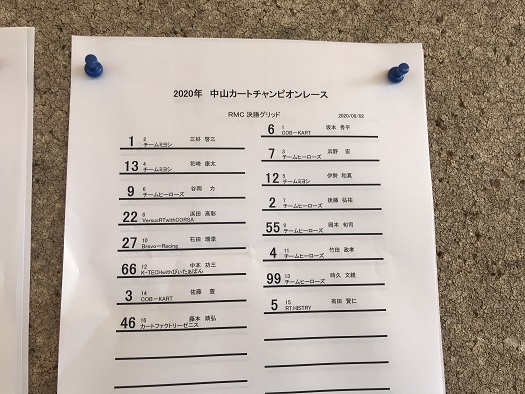 2020年 中山カートチャンピオンレース
RMC 決勝グリッド 2020/08/02
1 2 三好 啓三
チームミヨシ
13 4 花崎 康太
チームミヨシ
9 6 谷岡 力
チームヒーローズ
22 8 浜田 高彰
VersusRTwithCORSA
27 10 石田 増幸
Bravo-Racing
66 12 中本 初三
K-TECHwithぴいたぁぱん
3 14 佐藤 豊
COB-KART
46 16 藤本 靖弘
カートファクトリーゼニス
6 1 坂本 秀平
COB-KART
7 3 浜野 宏
チームヒーローズ
12 5 伊勢 和真
チームミヨシ
2 7 後藤 弘祐
チームヒーローズ
55 9 岡本 旬司
チームヒーローズ
4 11 竹田 政孝
チームヒーローズ
99 13 時久 文穂
チームヒーローズ
5 15 有田 賢仁
RT.HISTRY